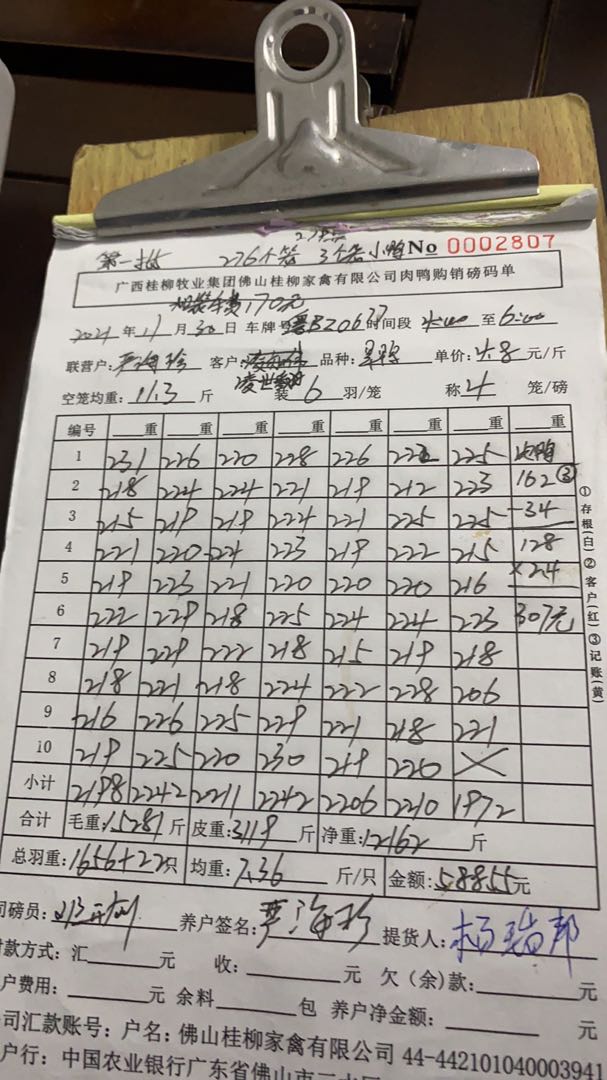 第一批 276个笼 3个笼小鸭 No 0002807
广西桂柳牧业集团佛山桂柳家禽有限公司肉鸭购销磅码单
170元
2021年11月30日 车牌号 时间段 至6:00
联营户: 严海珍 客户: 品种: 单价:4.8元/斤
空笼均重:11.3斤 装6羽/笼 称4笼/磅
编号 重 重 重 重 重 重 重 重
1 231 226 220 228 226 222 225 次鸭
2 218 224 224 221 219 212 223 162③
3 215 219 219 224 221 225 225 -34
4 221 220 224 223 219 222 215 128
5 219 223 221 220 220 220 216 ×2.4
6 222 229 218 225 224 224 223 307元
7 219 229 222 218 215 219 218
8 218 221 218 224 222 228 206
9 216 226 225 229 221 218 221
10 219 225 220 230 219 220 ×
小计 2198 2242 2211 2242 2206 2210 1972
合计 毛重:15281斤 皮重:3119斤 净重:12162斤
总羽重:1656+22只 均重:7.36斤/只 金额:58855元
司磅员: 养户签名:严海珍 提货人:杨瑞邦
付款方式:汇 元 收: 元 欠(余)款: 元
户费用: 元 余料 包 养户净金额: 元
公司汇款账号:户名:佛山桂柳家禽有限公司 44-442101040003941
户行:中国农业银行广东省佛山市三水区
①存根(白)②客户(红)③记账(黄)